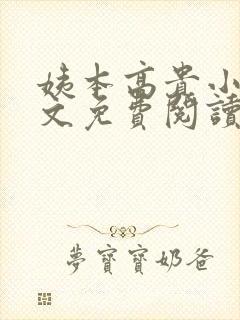 姨本高貴小
文免費閱讀
夢寶寶奶爸